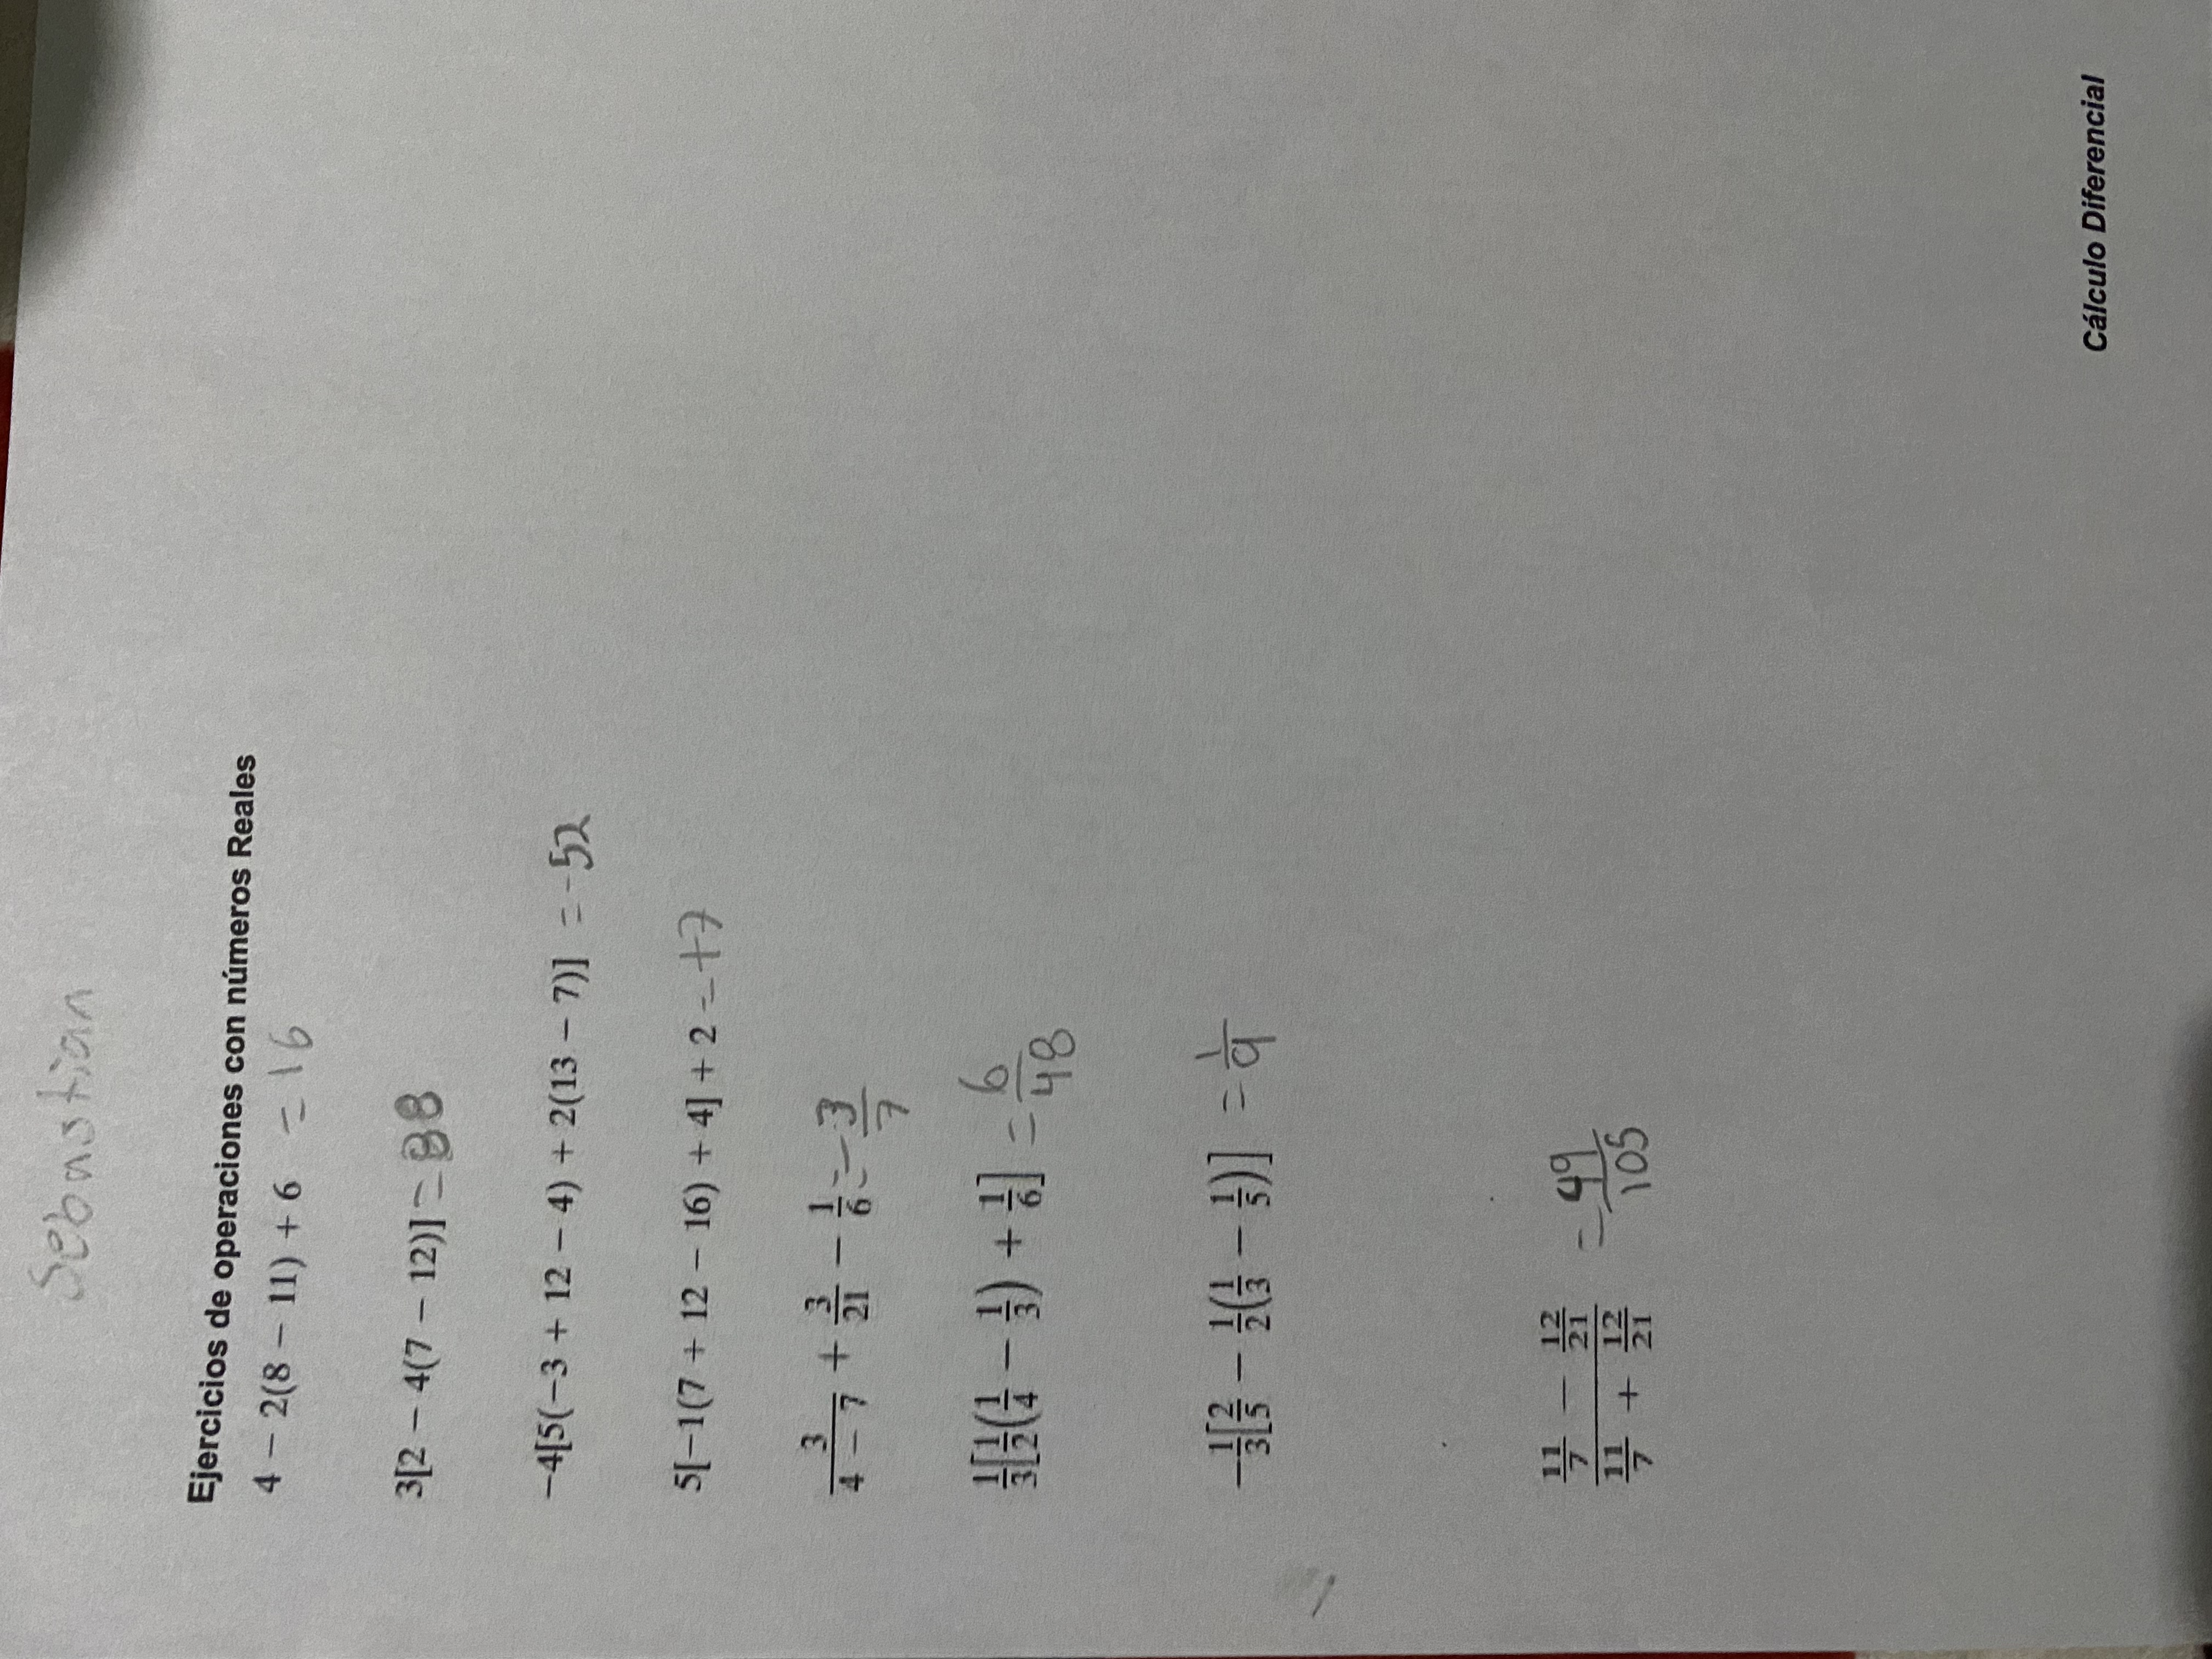 Sebastian
Ejercicios de operaciones con números Reales
4 − 2(8 − 11) + 6 = 16
3[2 − 4(7 − 12)] = 88
−4[5(−3 + 12 − 4) + 2(13 − 7)] = -52
5[−1(7 + 12 − 16) + 4] + 2 = +7
3/(4 − 7) + 3/21 − 1/6 = -3/7
1/3[1/2(1/4 − 1/3) + 1/6] = 6/48
−1/3[2/5 − 1/2(1/3 − 1/5)] = 1/9
(11/7 − 12/21)/(11/7 + 12/21) = 49/105
Cálculo Diferencial